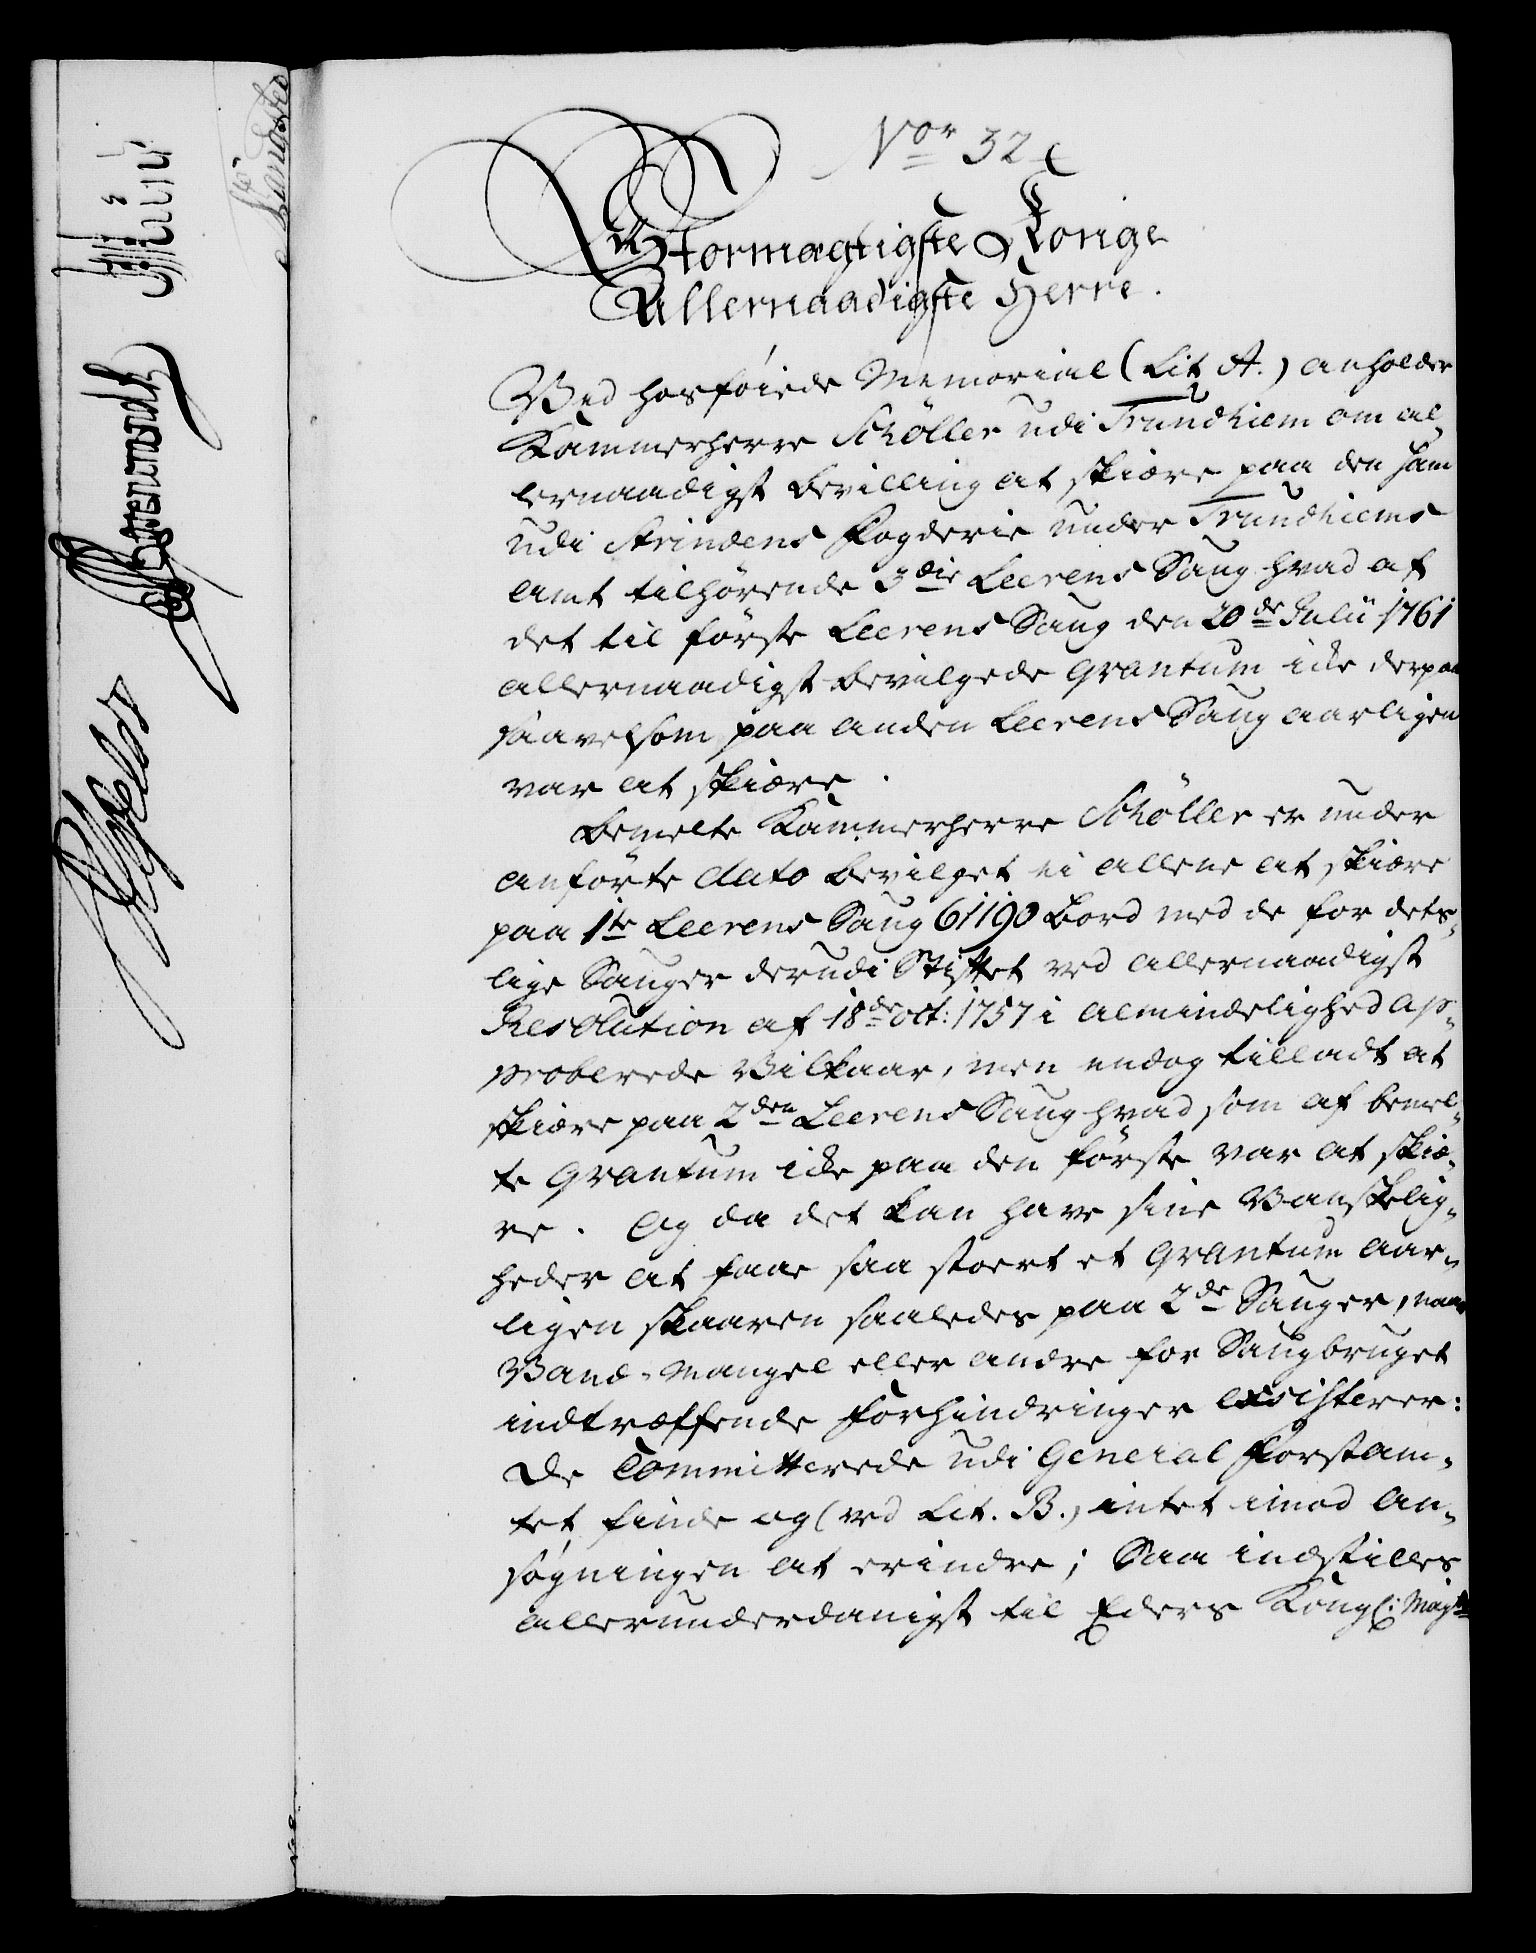 Nor 32
Stormægtigste Konge
Allernaadigste Herre.
Ved hosføiede Memorial (Lit A.) anholder
Kammerherre Schøller udi Trundhiem om al-
lernaadigst bevilling at skiære paa den ham
udi Strindens Fogderie under Trundhiems
Amt tilhørende 3die Leerens Saug hvad af
det til første Leerens Saug den 20de Julii 1761
allernaadigst bevilgede qvantum ikke derpaa
saavelsom paa anden Leerens Saug aarligen
var at skiære.
bemelte Kammerherre Schøller er under
anførte dato bevilget ei allene at skiære
paa 1te Leerens Saug 61190 Bord med de for des-
lige Sauger derudi Stiftet ved allernaadigst
Resolution af 18de Oct: 1757 i almindelighed ap-
proberede Vilkaar, men endog tilladt at
skiære paa 2den Leerens Saug hvad som af bemel-
te qvantum ikke paa den første var at skiæ-
re. Og da det kan have sine Vanskelig-
heder at faae saa stoert et qvantum aar-
ligen skaaren saaledes paa 2de Sauger, naar
Vand-Mangel eller andre for Saugbruget
indtræffende Forhindringer exsisterer:
De Committerede udi General Forstam-
tet finde og (ved Lit. B.) intet imod An-
søgningen at erindre; Saa indstilles
allerunderdanigst til Eders Kongl: Mayts